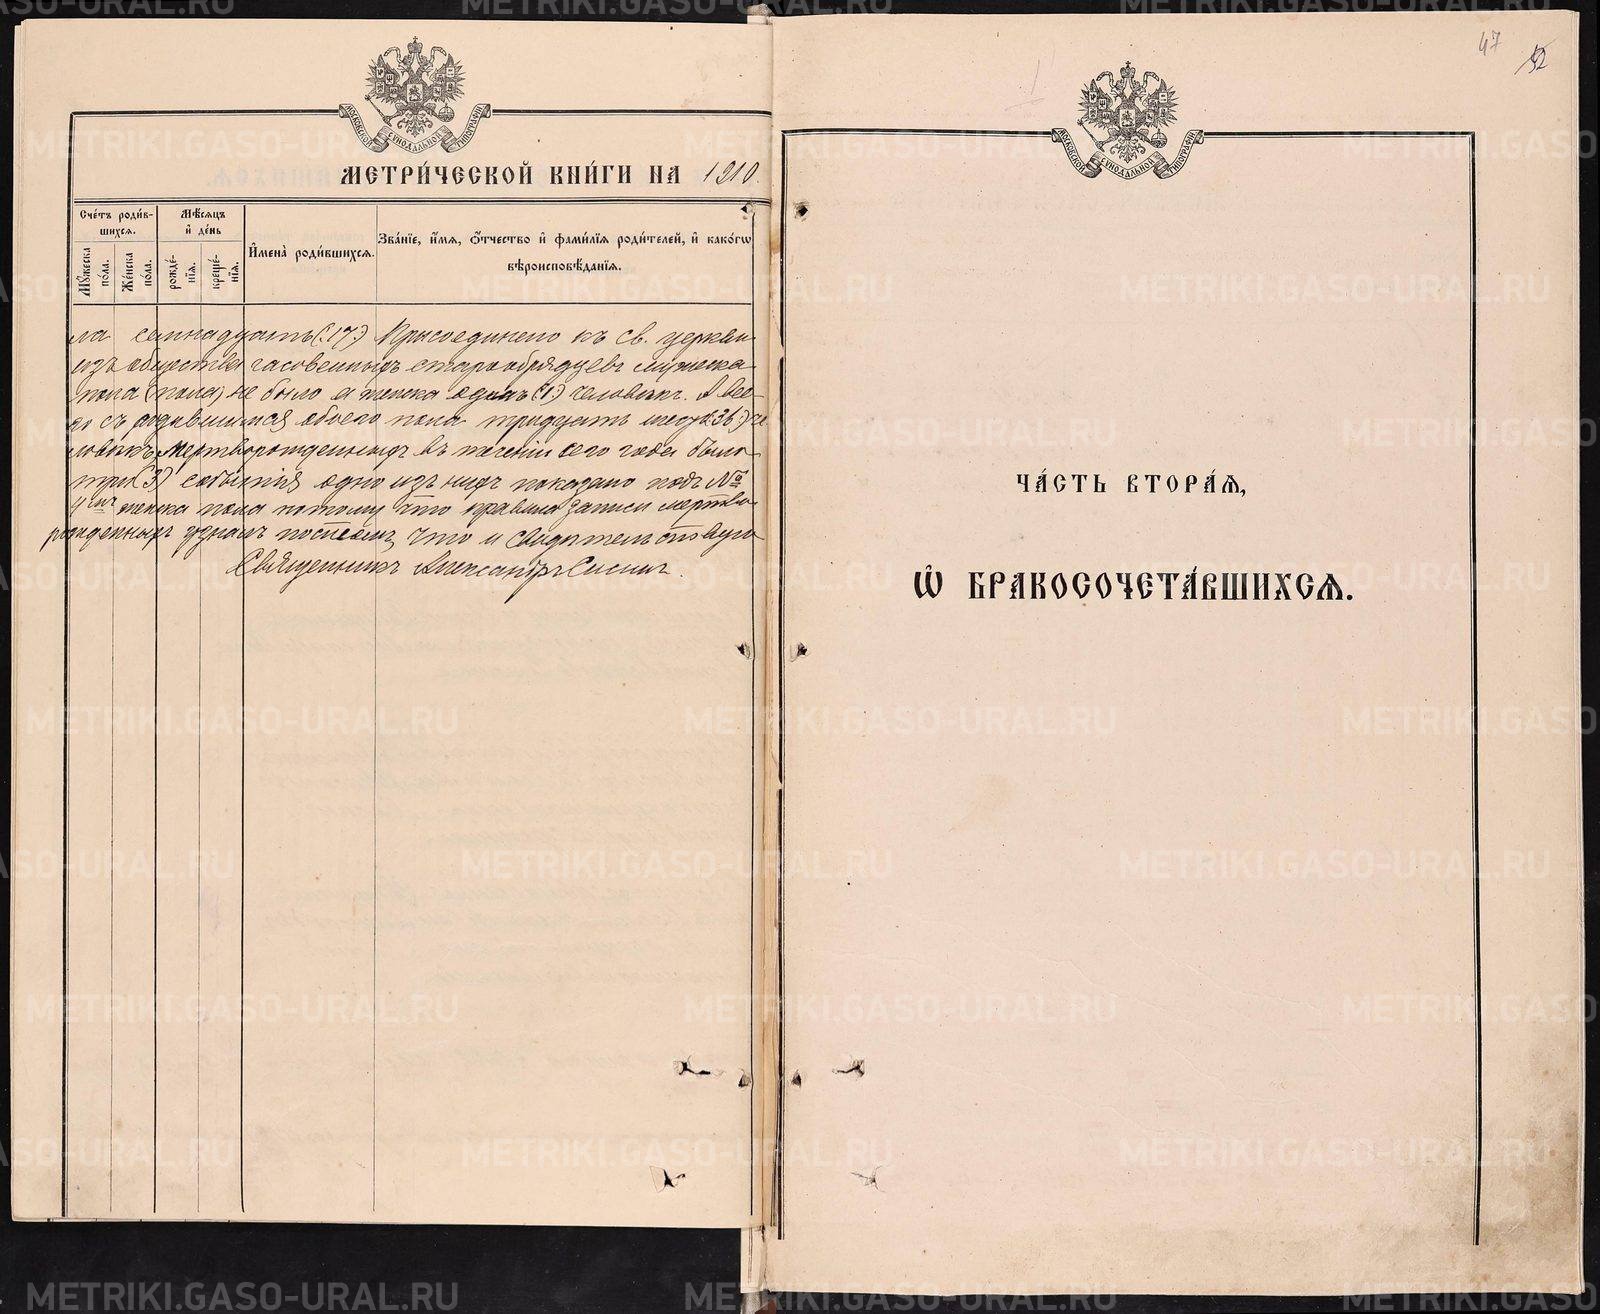 МЕТРИ́ЧЕСКОЙ КНИ́ГИ НА 1910.
Сче́тъ роди́в-
шихсѧ.
Мꙋ́жеска по́ла.
Же́нска по́ла.
Мѣ́сѧцъ и҆ де́нь
рожде́-
нїѧ.
креще́-
нїѧ.
И҆мена̀ роди́вшихсѧ.
Зва́нїе, и҆́мѧ, ѻ҆́тчество и҆ фами́лїѧ роди́телей, и҆ како́гѡ
вѣроисповѣ́данїѧ.
ла семнадцать (:17:) Присоединено къ св. церкви
изъ общества часовенныхъ старообрядцевъ мужска
пола (пола) не было а женска одинъ (:1:) человѣкъ. А все-
го съ родившимися обоего пола тридцать шесть (:36:) че
ловѣкъ, Мертворожденныхъ въ теченіи сего года было
три (3) событія одно изъ нихъ показано подъ №
4ым женска пола потому что правила записи мертво
рожденныхъ узналъ послѣ, что и свидѣтельствую
Священникъ Александръ
МОСКОВСКОЙ СѴНОДАЛЬНОЙ ТИПОГРАФІИ
47
52
МОСКОВСКОЙ СѴНОДАЛЬНОЙ ТИПОГРАФІИ
ЧА́СТЬ ВТОРА́Ѧ,
Ѡ҆ БРАКОСОЧЕТА́ВШИХСѦ.
METRIKI.GASO-URAL.RU